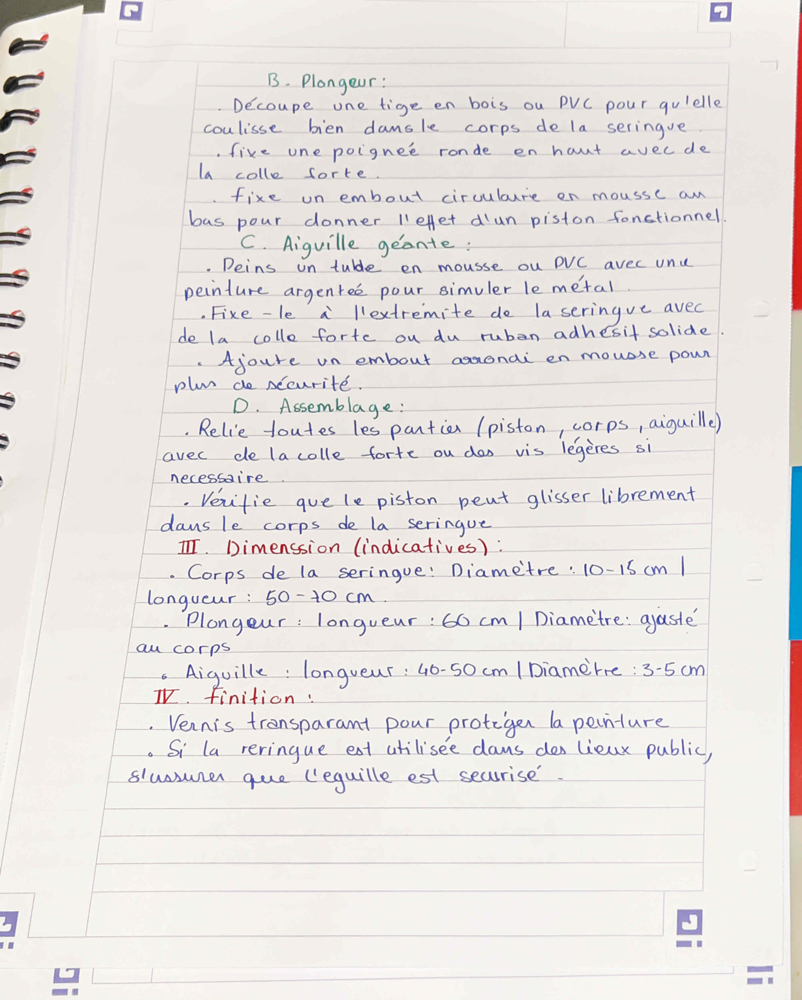 B. Plongeur :
. Découpe une tige en bois ou PVC pour qu'elle
coulisse bien dans le corps de la seringue.
. fixe une poigneé ronde en haut avec de
la colle forte.
. fixe un embout circulaire en mousse au
bas pour donner l'effet d'un piston fonctionnel.
C. Aiguille géante :
. Peins un tube en mousse ou PVC avec une
peinture argenteé pour simuler le métal.
. Fixe-le à l'extrémite de la seringue avec
de la colle forte ou du ruban adhésif solide.
. Ajoute un embout arrondi en mousse pour
plus de sécurité.
D. Assemblage :
. Relie toutes les parties (piston, corps, aiguille)
avec de la colle forte ou des vis légères si
necessaire.
. Vérifie que le piston peut glisser librement
dans le corps de la seringue
III. Dimenssion (indicatives) :
. Corps de la seringue : Diamètre : 10-15 cm |
longueur : 50-70 cm.
. Plongeur : longueur : 60 cm | Diamètre : ajusté
au corps
. Aiguille : longueur : 40-50 cm | Diamètre : 3-5 cm
IV. finition :
. Vernis transparant pour protéger la peinture
. Si la seringue est utilisée dans des lieux public,
s'assurer que l'eguille est securisé.